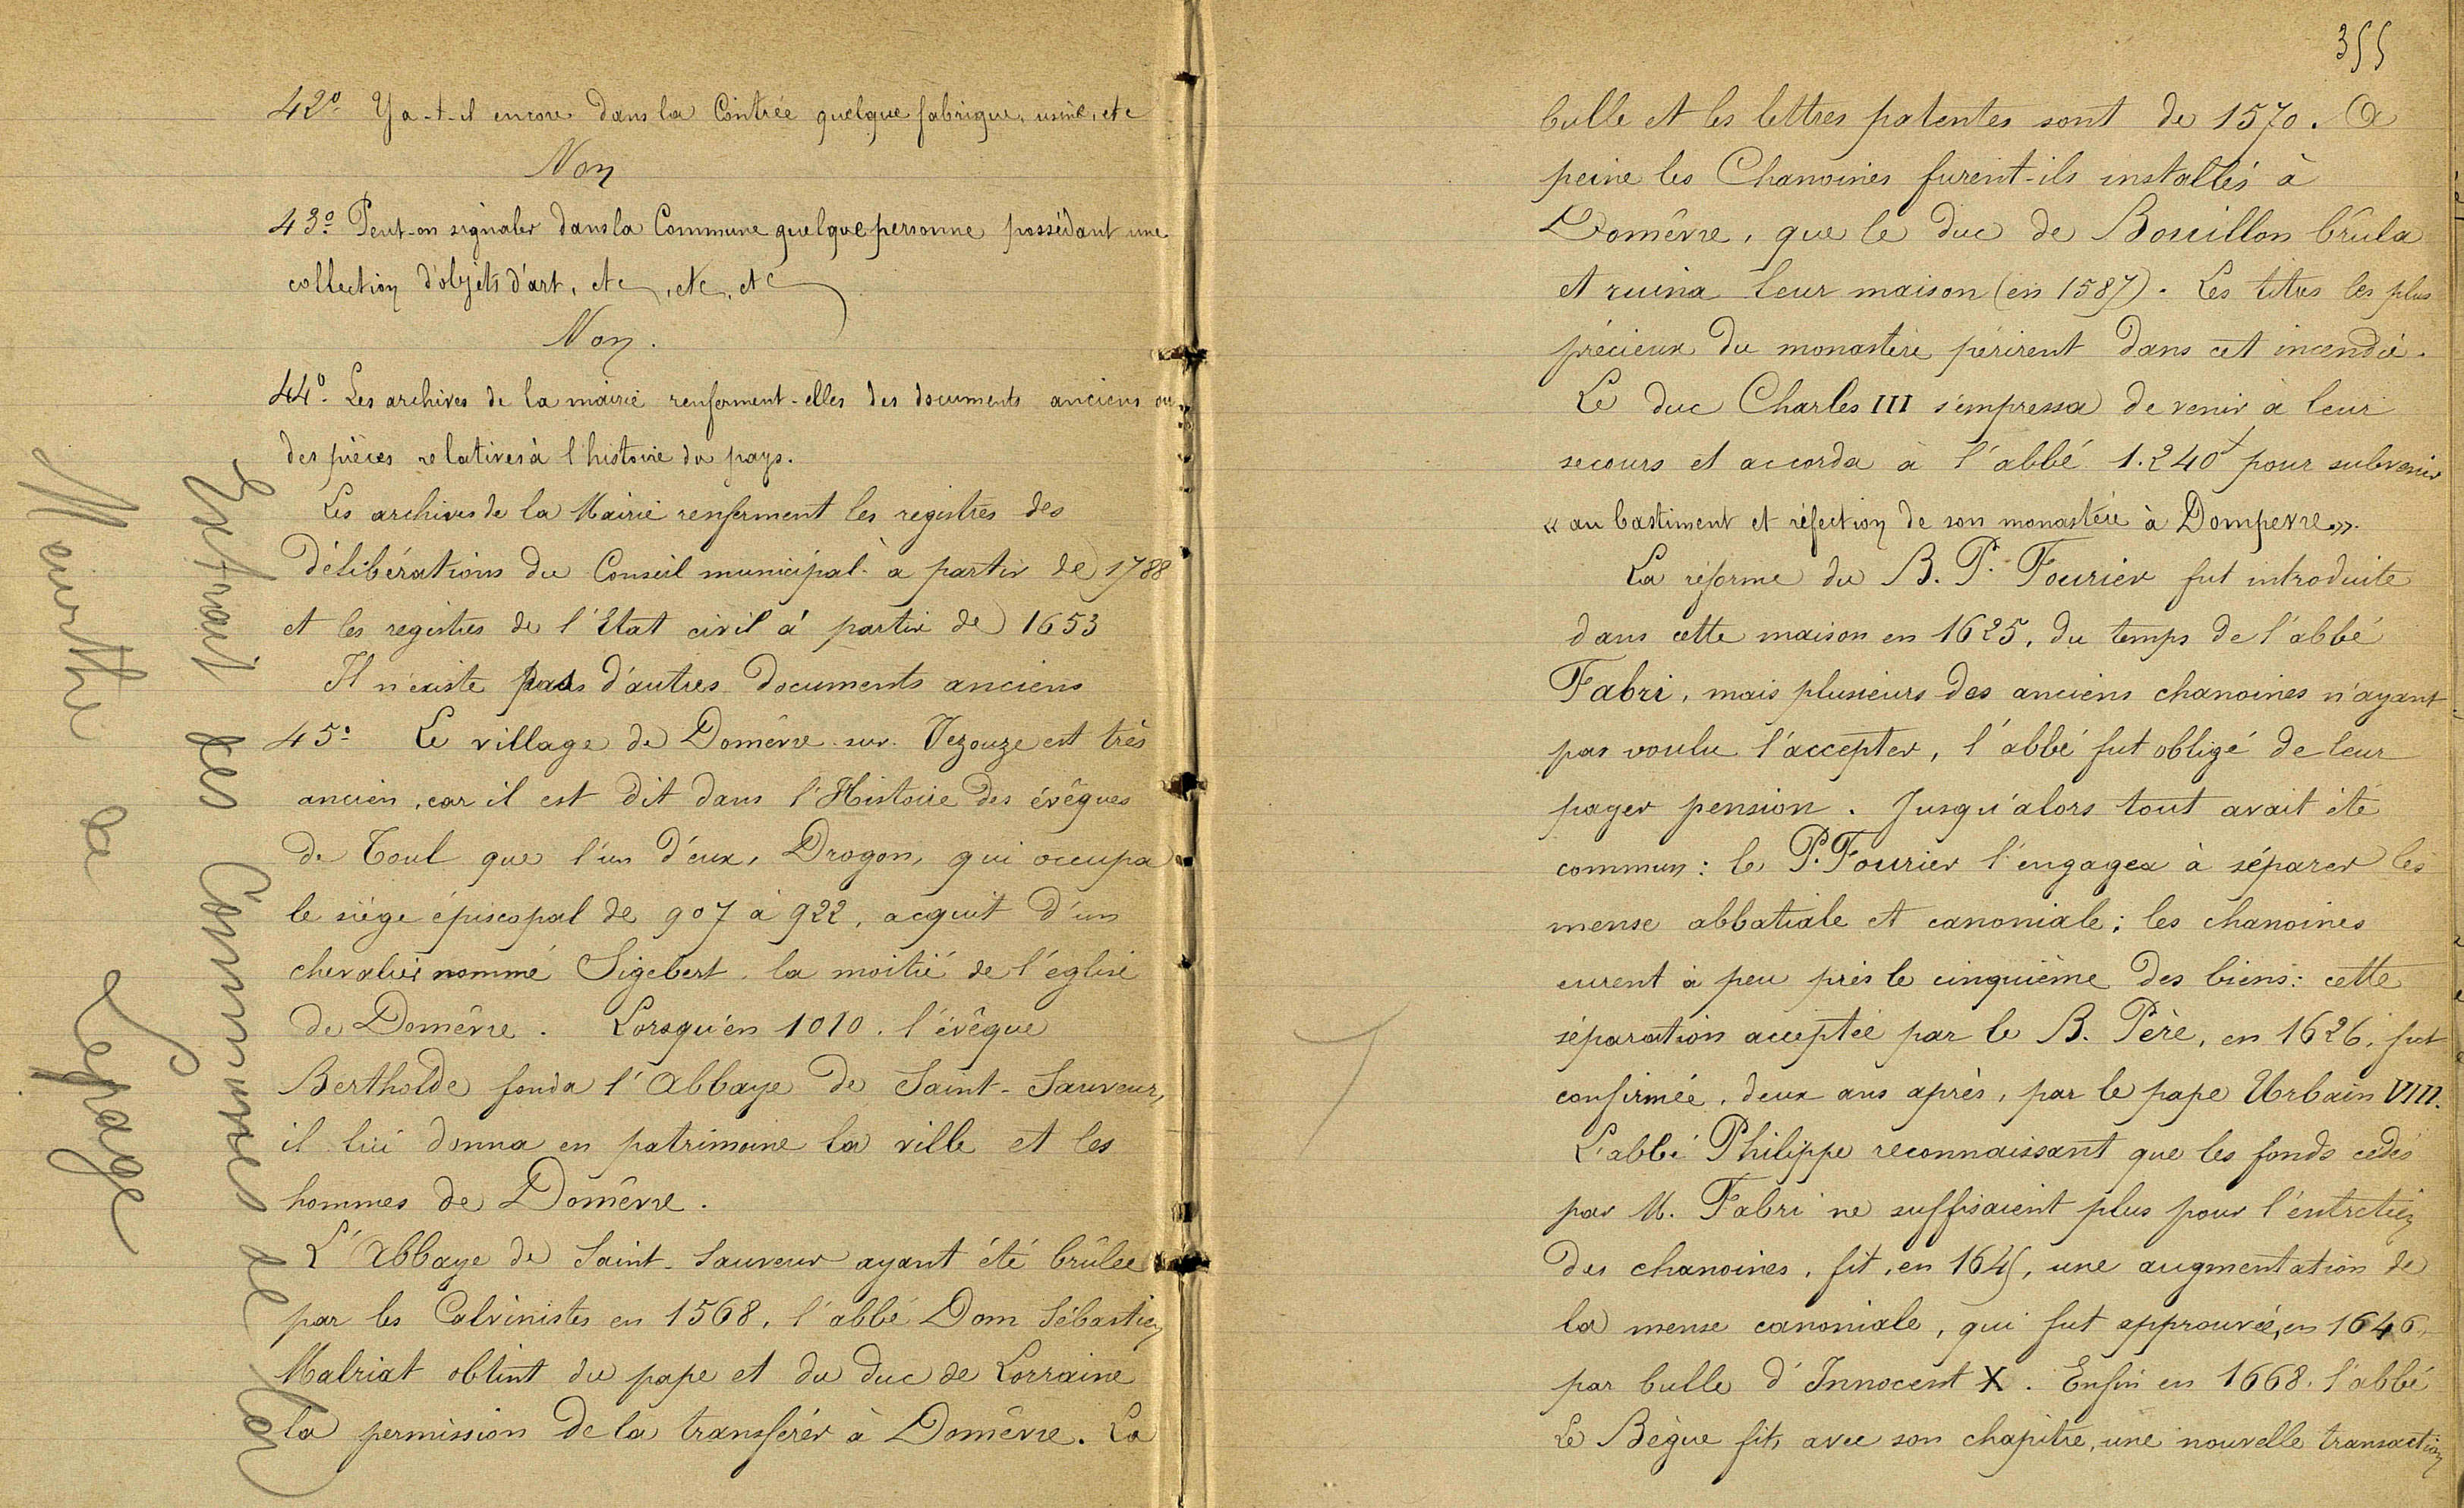 42º Y a-t-il encore dans la Contrée quelque fabrique, usine, etc
Non
43º Peut-on signaler dans la Commune quelque personne possédant une
collection d'objets d'art, etc, etc, etc
Non.
44º. Les archives de la mairie renferment-elles des documents anciens ou
des pièces relatives à l'histoire du pays.
Les archives de la Mairie renferment les registres des
délibérations du Conseil municipal à partir de 1788
et les registres de l'Etat civil à partir de 1653
Il n'existe pas d'autres documents anciens
45º Le village de Domêvre-sur-Vezouze est très
ancien, car il est dit dans l'Histoire des évêques
de Toul que l'un d'eux, Drogon, qui occupa
le siège épiscopal de 907 à 922, acquit d'un
chevalier nommé Sigebert la moitié de l'église
de Domêvre. Lorsqu'en 1010, l'évêque
Bertholde fonda l'Abbaye de Saint-Sauveur,
il lui donna en patrimoine la ville et les
hommes de Domêvre.
L'Abbaye de Saint-Sauveur ayant été brûlée
par les Calvinistes en 1568, l'abbé Dom Sébastien
Malriat obtint du pape et du duc de Lorraine
la permission de la transférer à Domêvre. La
Extrait des Communes de la
Meurthe de Lepage
355
bulle et les lettres patentes sont de 1570. A
peine les Chanoines furent-ils installés à
Domêvre, que le duc de Bouillon brûla
et ruina leur maison (en 1587). Les titres les plus
précieux du monastère périrent dans cet incendie.
Le duc Charles III s'empressa de venir à leur
secours et accorda à l'abbé 1.240f pour subvenir
« au bastiment et réfection de son monastère à Dompevre ».
La réforme du B. P. Fourier fut introduite
dans cette maison en 1625, du temps de l'abbé
Fabri, mais plusieurs des anciens chanoines n'ayant
pas voulu l'accepter, l'abbé fut obligé de leur
payer pension. Jusqu'alors tout avait été
commun : le P. Fourier l'engagea à séparer les
mense abbatiale et canoniale ; les chanoines
eurent à peu près le cinquième des biens : cette
séparation acceptée par le B. Père, en 1626, fut
confirmée, deux ans après, par le pape Urbain VIII.
L'abbé Philippe reconnaissant que les fonds cédés
par M. Fabri ne suffisaient plus pour l'entretien
des chanoines, fit, en 1645, une augmentation de
la mense canoniale, qui fut approuvée, en 1646,
par bulle d'Innocent X. Enfin en 1668, l'abbé
Le Bègue fit, avec son chapitre, une nouvelle transaction